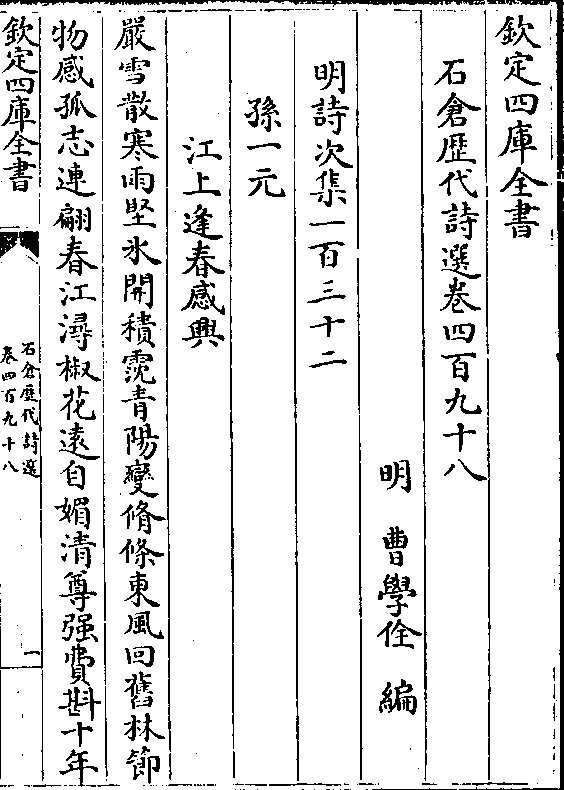 欽定四庫全書
石倉歷代詩選卷四百九十八
明 曹學佺 編
明詩次集一百三十二
孫一元
江上逢春感興
嚴雪散寒雨堅氷開積霓青陽變脩條東風回舊林節
物感孤志連翩春江潯椒花遠自媚清尊强費斟十年
欽定四庫全書
石倉歷代詩選
卷四百九十八
一